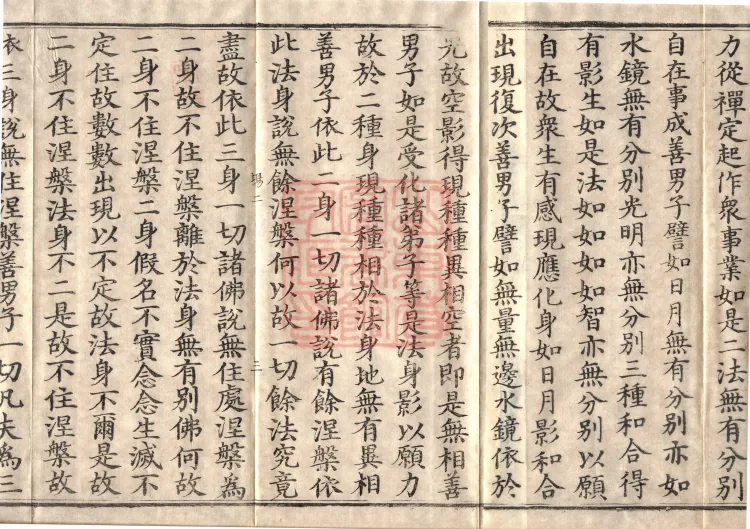 力從禪定起作衆事業如是二法無有分別
自在事成善男子譬如日月無有分別亦如
水鏡無有分別光明亦無分別三種和合得
有影生如是法如如如如智亦無分別以願
自在故衆生有感現應化身如日月影和合
出現復次善男子譬如無量無邊水鏡依於
光故空影得現種種異相空者即是無相善
男子如是受化諸弟子等是法身影以願力
故於二種身現種種相於法身地無有異相
善男子依此二身一切諸佛說有餘涅槃依
此法身說無餘涅槃何以故一切餘法究竟
場二 三
盡故依此三身一切諸佛說無住處涅槃為
二身故不住涅槃離於法身無有別佛何故
二身不住涅槃二身假名不實念念生滅不
定住故數數出現以不定故法身不爾是故
二身不住涅槃法身不二是故不住涅槃故
依三身說無住涅槃善男子一切凡夫為三